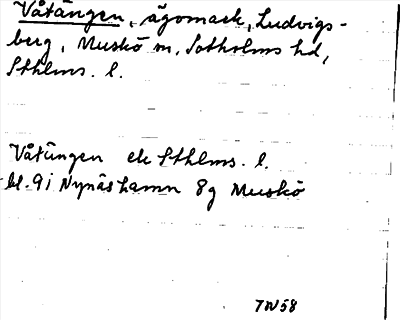 Våtängen, ägomark, Ludvigs-
berg, Muskö sn, Sotholms hd,
Sthlms. l.
Våtängen ek Sthlms. l.
bl. 9i Nynäshamn 8g Muskö
TW58